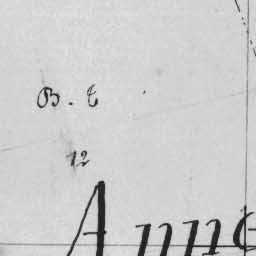 B. t
12
Anne